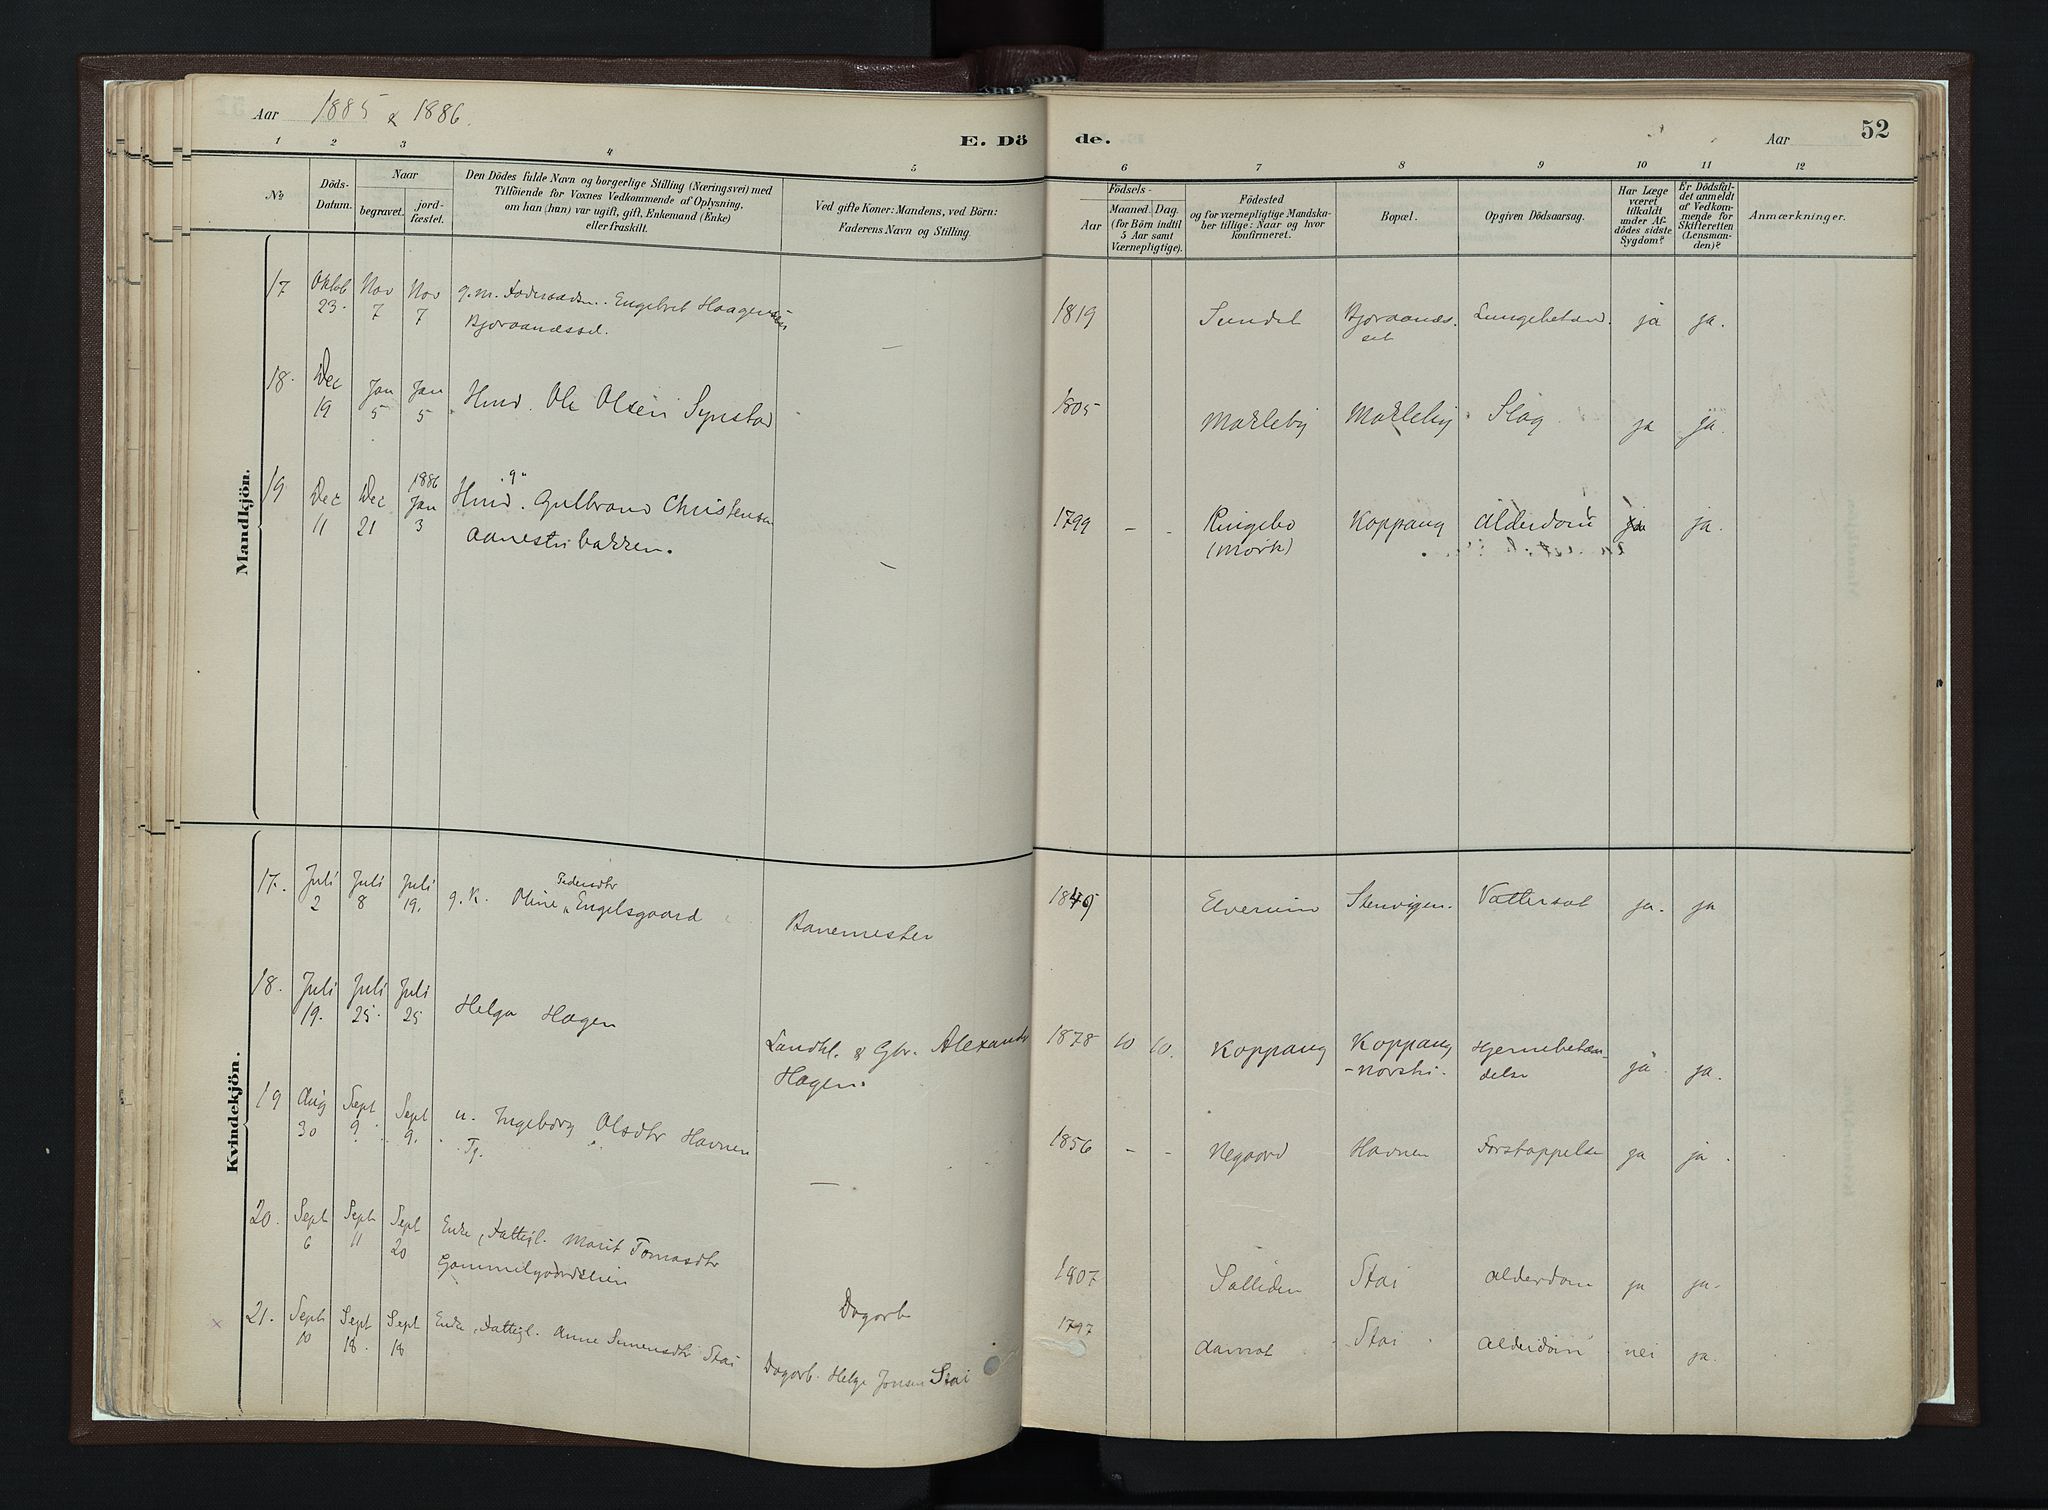 Aar 1885 & 1886.
E. Dö de.
Aar
52
1 2 3 4 5 6 7 8 9 10 11 12
№
Döds-
Datum.
Naar
begravet.
jord-
fæstet.
Den Dödes fulde Navn og borgerlige Stilling (Næringsvei) med
Tilföiende for Voxnes Vedkommende af Oplysning,
om han (hun) var ugift, gift, Enkemand (Enke)
eller fraskilt.
Ved gifte Koner: Mandens, ved Börn:
Faderens Navn og Stilling
Födsels-
Aar
Maaned.
Dag.
(for Börn indtil
5 Aar samt
Værnepligtige).
Födested
og for værnepligtige Mandska-
ber tillige: Naar og hvor
konfirmeret.
Bopæl.
Opgiven Dödsaarsag.
Har Læge
været
tilkaldt
under Af-
dödes sidste
Sygdom?
Er Dödsfal-
det anmeldt
af Vedkom-
mende for
Skifteretten
(Lensman-
den)?
Anmærkninger.
Mandkjön.
17 Oktob 23. Nov 7 Nov 7 g. m. Engebret Haagensen
Bjøraanæsset. 1819 Sundet Bjøraanæs-
set Lungebetænd. ja ja.
18. Dec 19 Jan 5 Jan 5 Husd. Ole Olsen Synstad 1805 Mokleby Mokleby Slag ja ja.
19 Dec 11 Dec 21 1886 Jan 3 Husd. "g" Gulbrand Christensen
Aanestubakken. 1799 - - Ringebo
(Mork) Koppang Alderdom ja ja.
Kvindekjön.
17. Juli 2 Juli 8 Juli 19. g. K. Oline Pedersdtr Engelsgaard Banemester 1849 Elverum Stenvigen. Vattersot ja. ja
18. Juli 19. Juli 25. Juli 25 Helga Hagen Landhl. & Gbr. Alexander
Hagen. 1878 10 10. Koppang Koppang
-norstu. Hjernebetæn-
delse ja ja.
19 Aug 30 Sept 9 Sept 9. u. Ingeborg Olsdtr Havnen
Tj. 1856 - - Negaard Havnen Forstoppelse ja ja.
20. Sept 6 Sept 11 Sept 20 Enke, Fattigl. Marit Tomasdtr
Gammelgaardslien Dagarb 1807 Sølliden Stai Alderdom ja ja.
21. Sept 10 Sept 18. Sept 18 Enke, Fattigl. Anne Simensdtr Stai Dagarb. Helge Jonsen Stai 1797 Aamot Stai Alderdom nei ja.